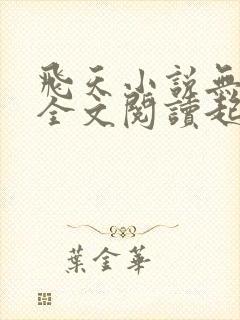 飛天小說無
全文閱讀起
葉金華